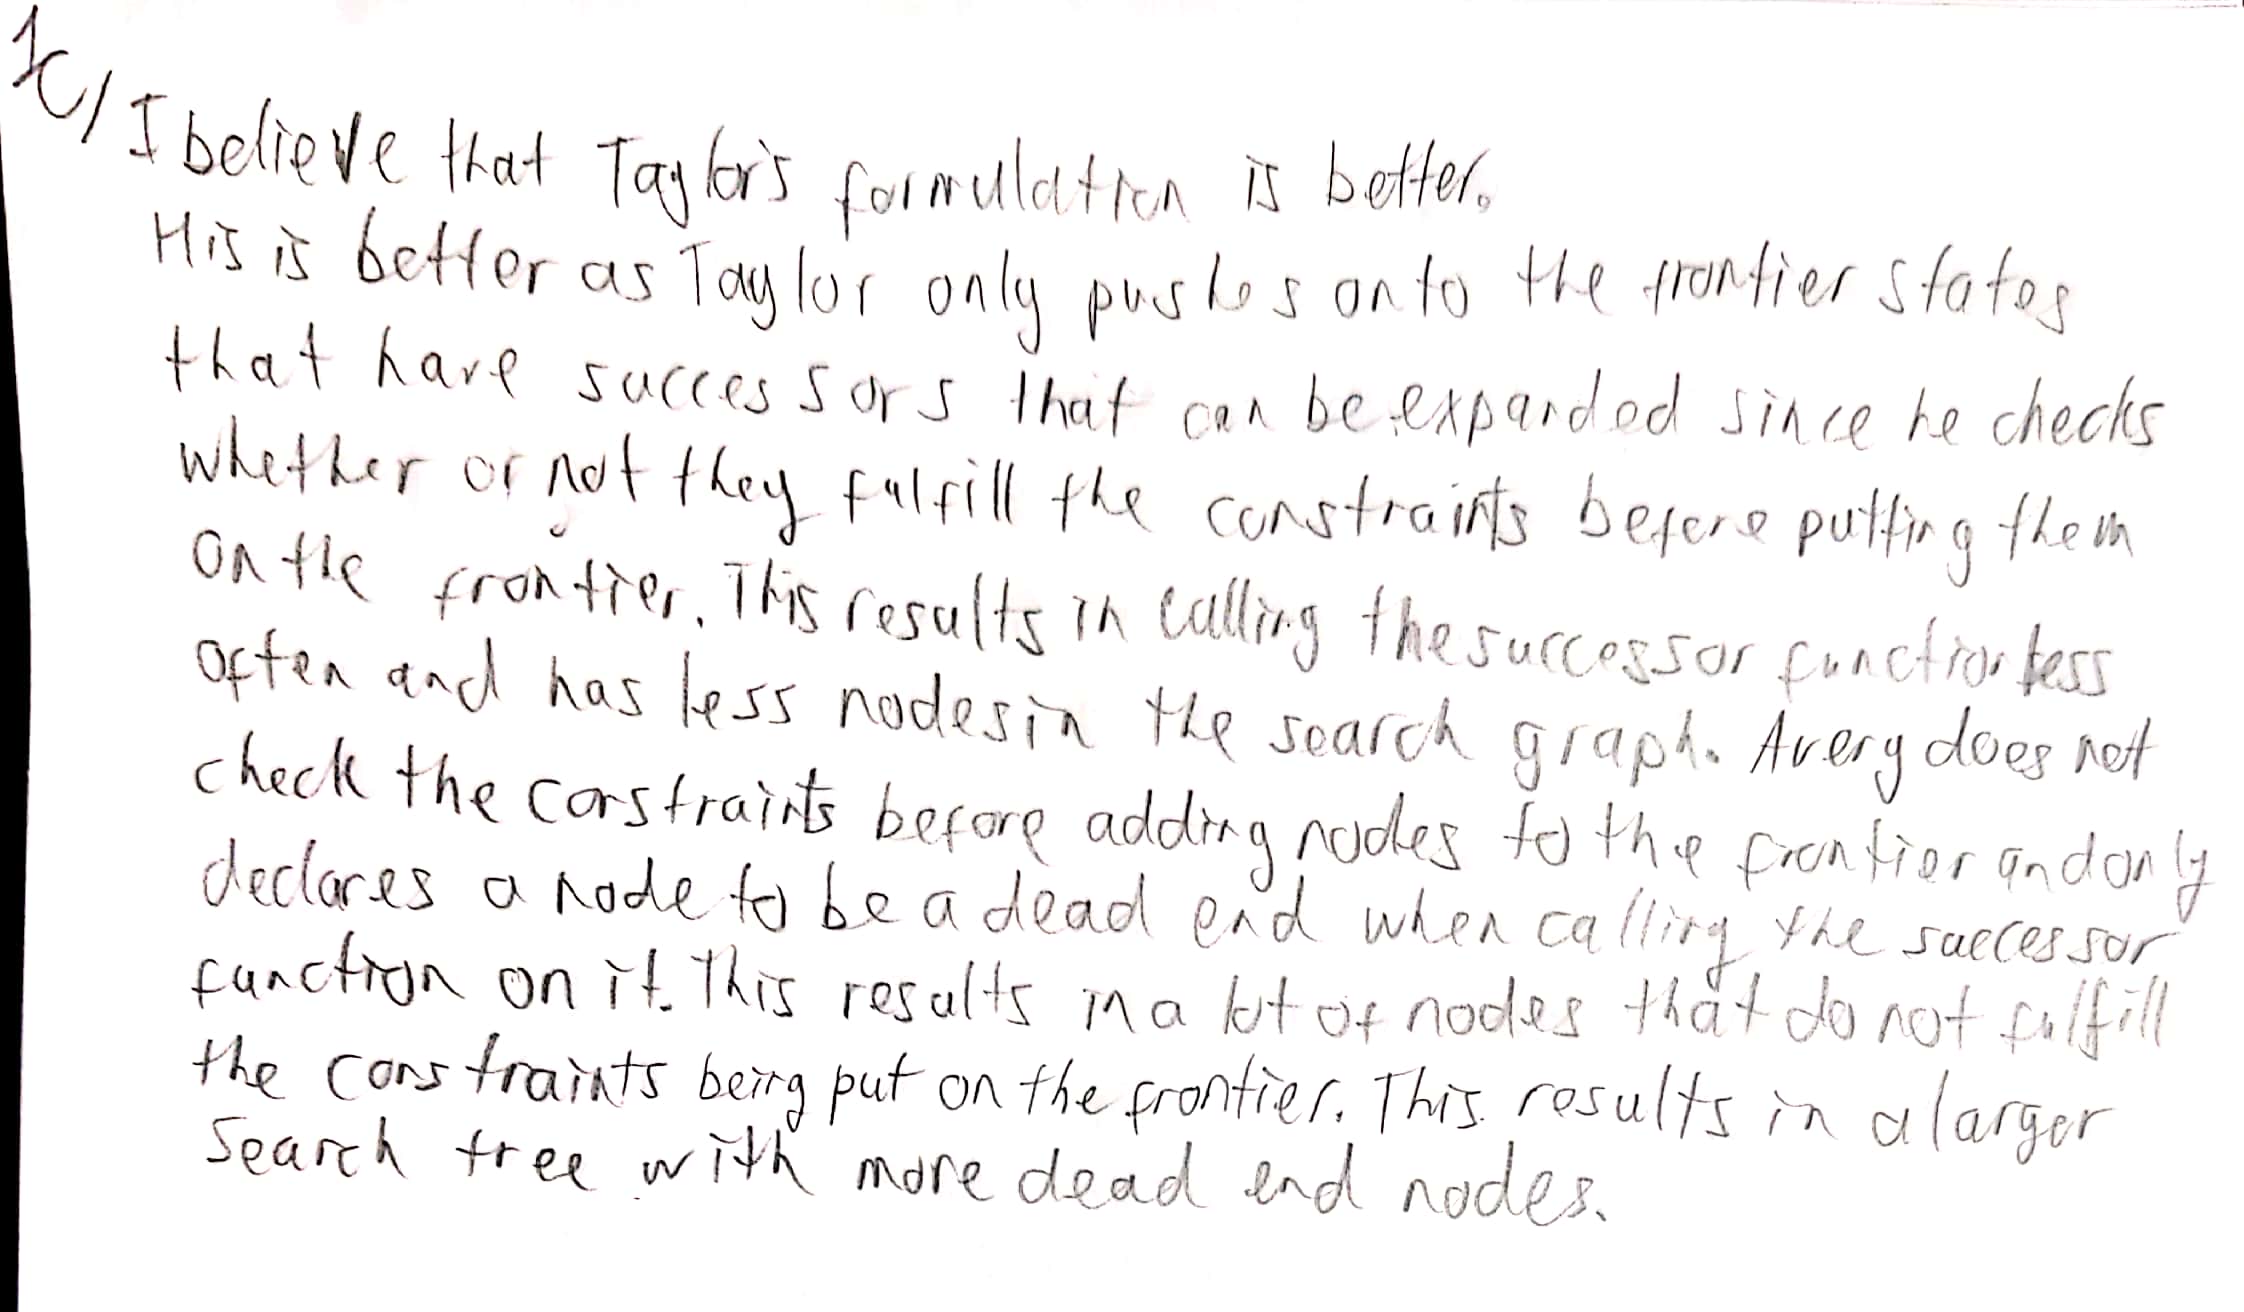 1c/ I believe that Taylor's formulation is better.
His is better as Taylor only pushes onto the frontier states
that have successors that can be expanded since he checks
whether or not they fulfill the constraints before putting them
on the frontier. This results in calling the successor function less
often and has less nodes in the search graph. Avery does not
check the constraints before adding nodes to the frontier and only
declares a node to be a dead end when calling the successor
function on it. This results in a lot of nodes that do not fulfill
the constraints being put on the frontier. This results in a larger
Search tree with more dead end nodes.